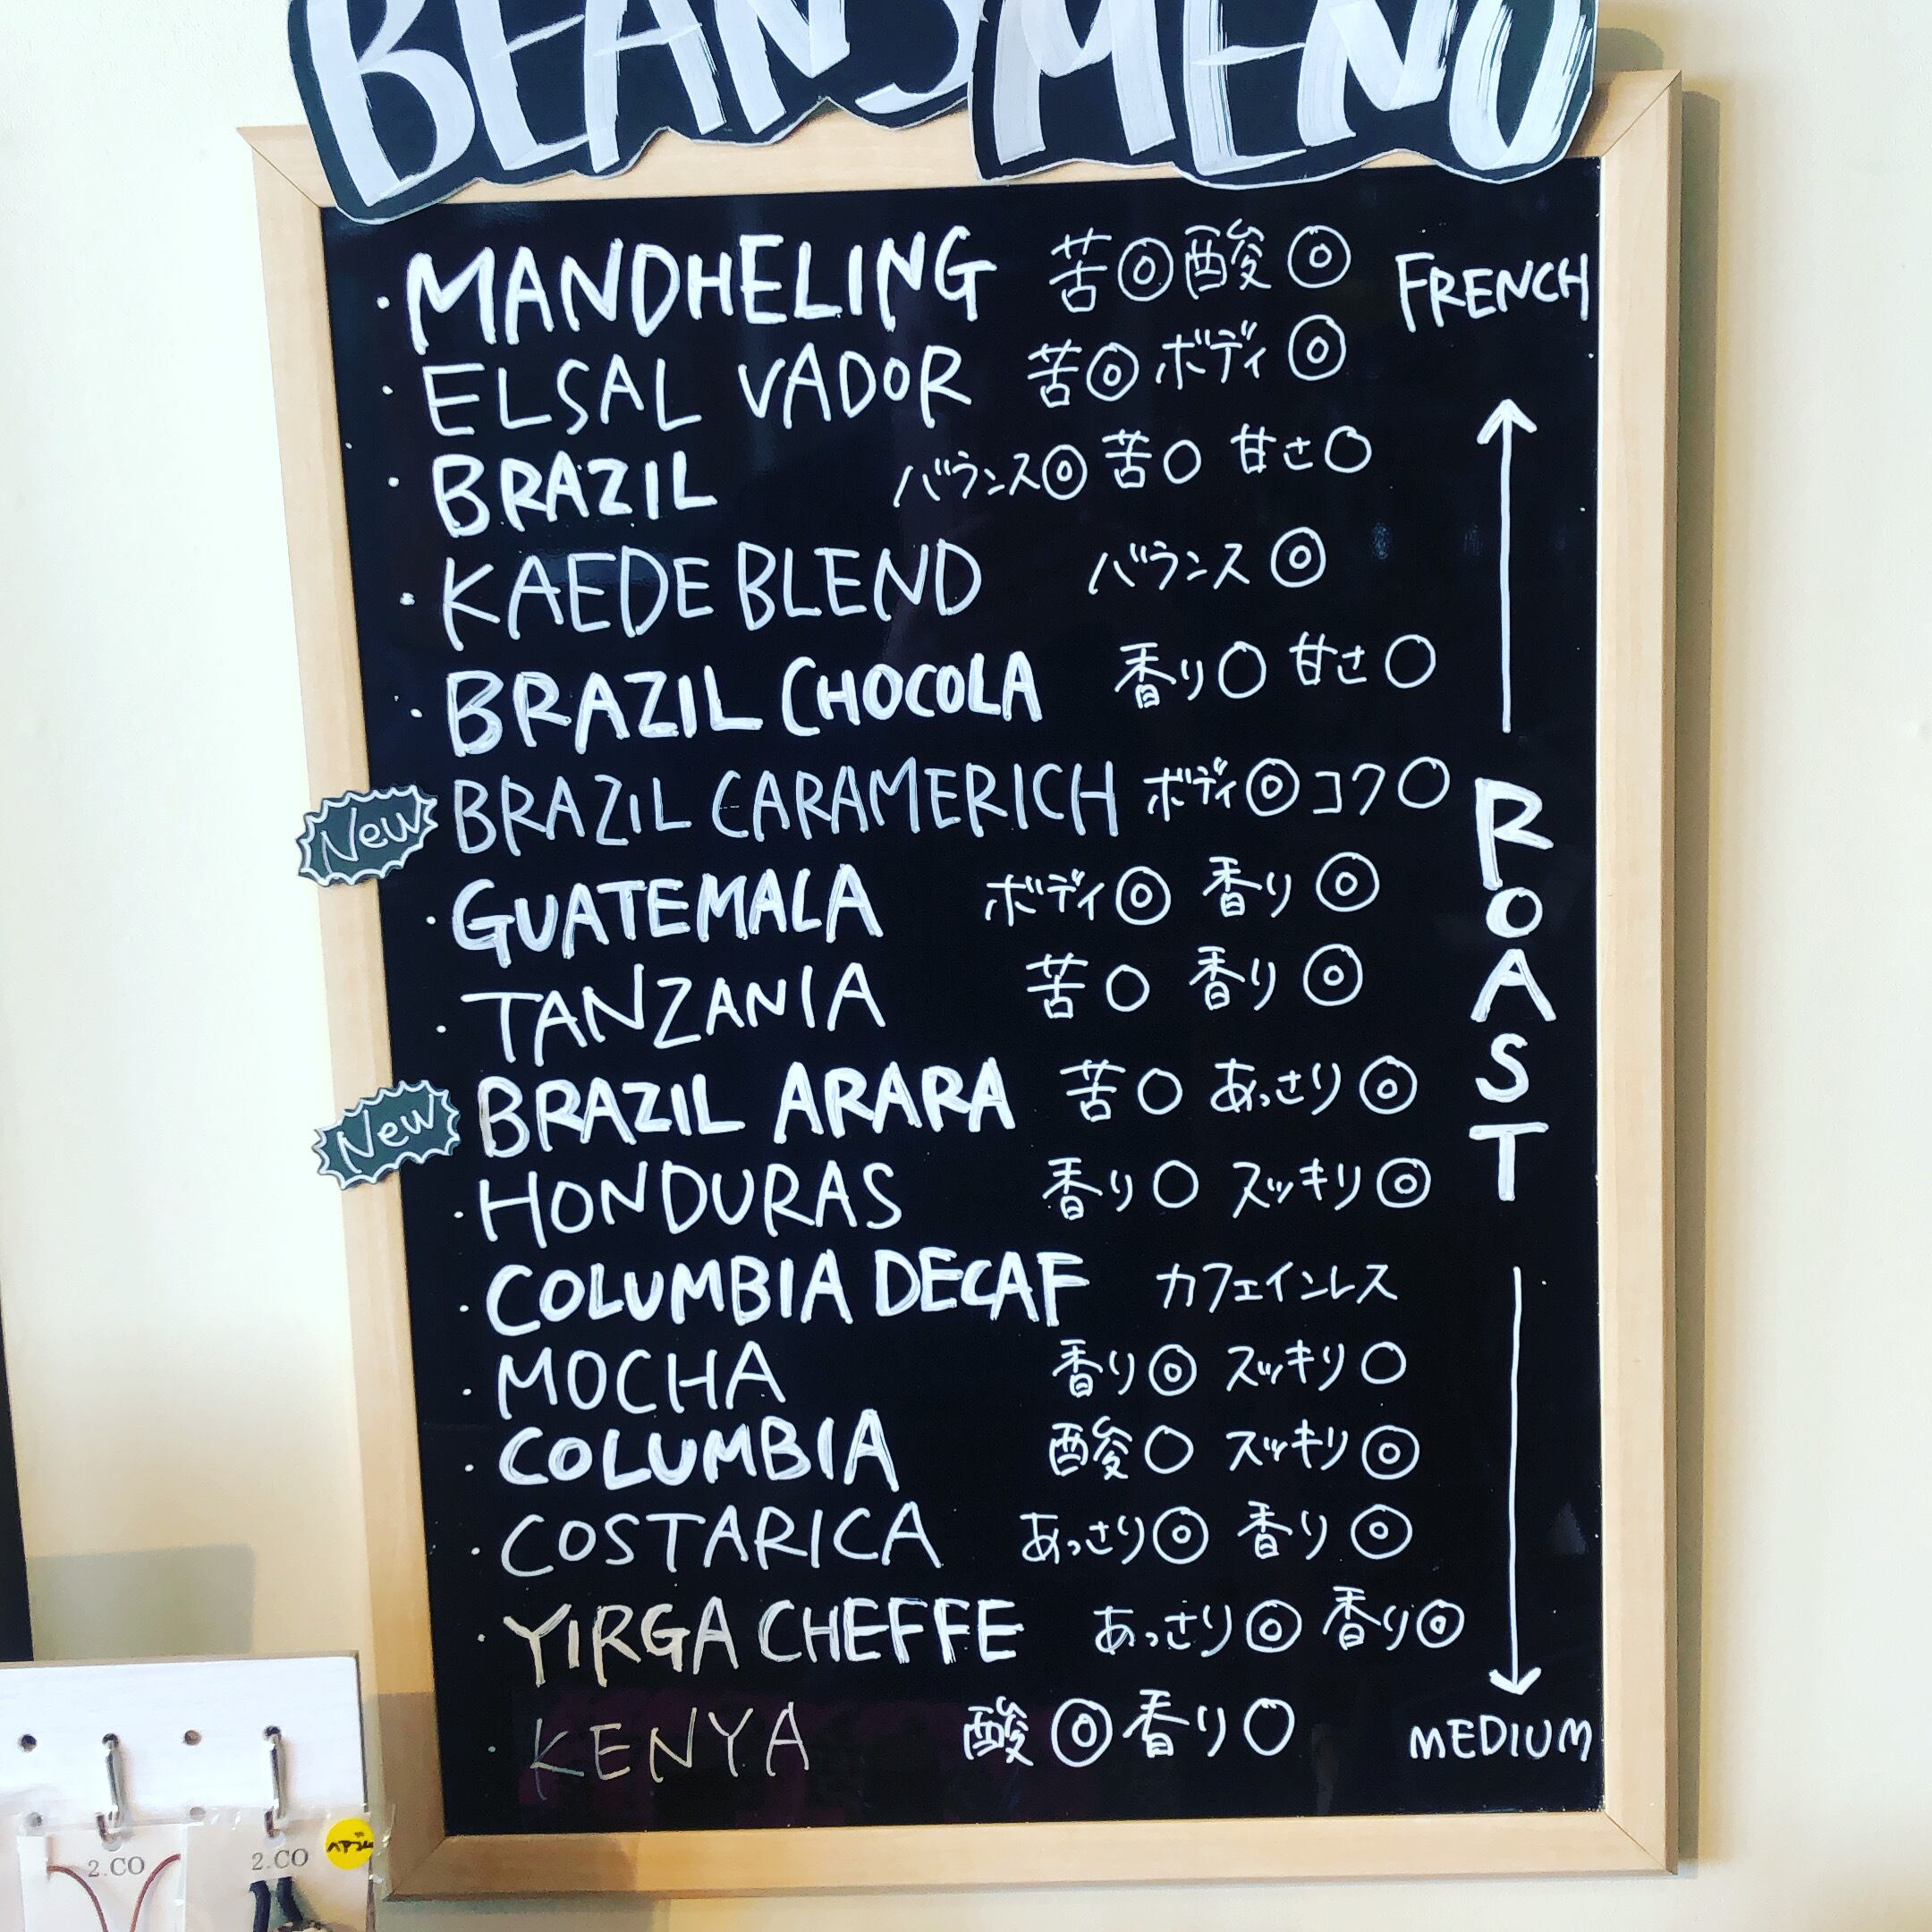 BEANS MENU
・MANDHELING 苦◎酸◎ FRENCH
・ELSAL VADOR 苦◎ボディ◎
・BRAZIL バランス◎苦○ 甘さ○
・KAEDE BLEND バランス◎
・BRAZIL CHOCOLA 香り○ 甘さ○
New BRAZIL CARAMERICH ボディ◎コク○
・GUATEMALA ボディ◎ 香り◎
・TANZANIA 苦○ 香り◎
New BRAZIL ARARA 苦○ あっさり◎
・HONDURAS 香り○ スッキリ◎
・COLUMBIA DECAF カフェインレス
・MOCHA 香り◎ スッキリ○
・COLUMBIA 酸○ スッキリ◎
・COSTARICA あっさり◎ 香り◎
・YIRGA CHEFFE あっさり◎ 香り◎
・KENYA 酸◎香り○
ROAST
MEDIUM
2.CO
2.CO
ヘアゴム